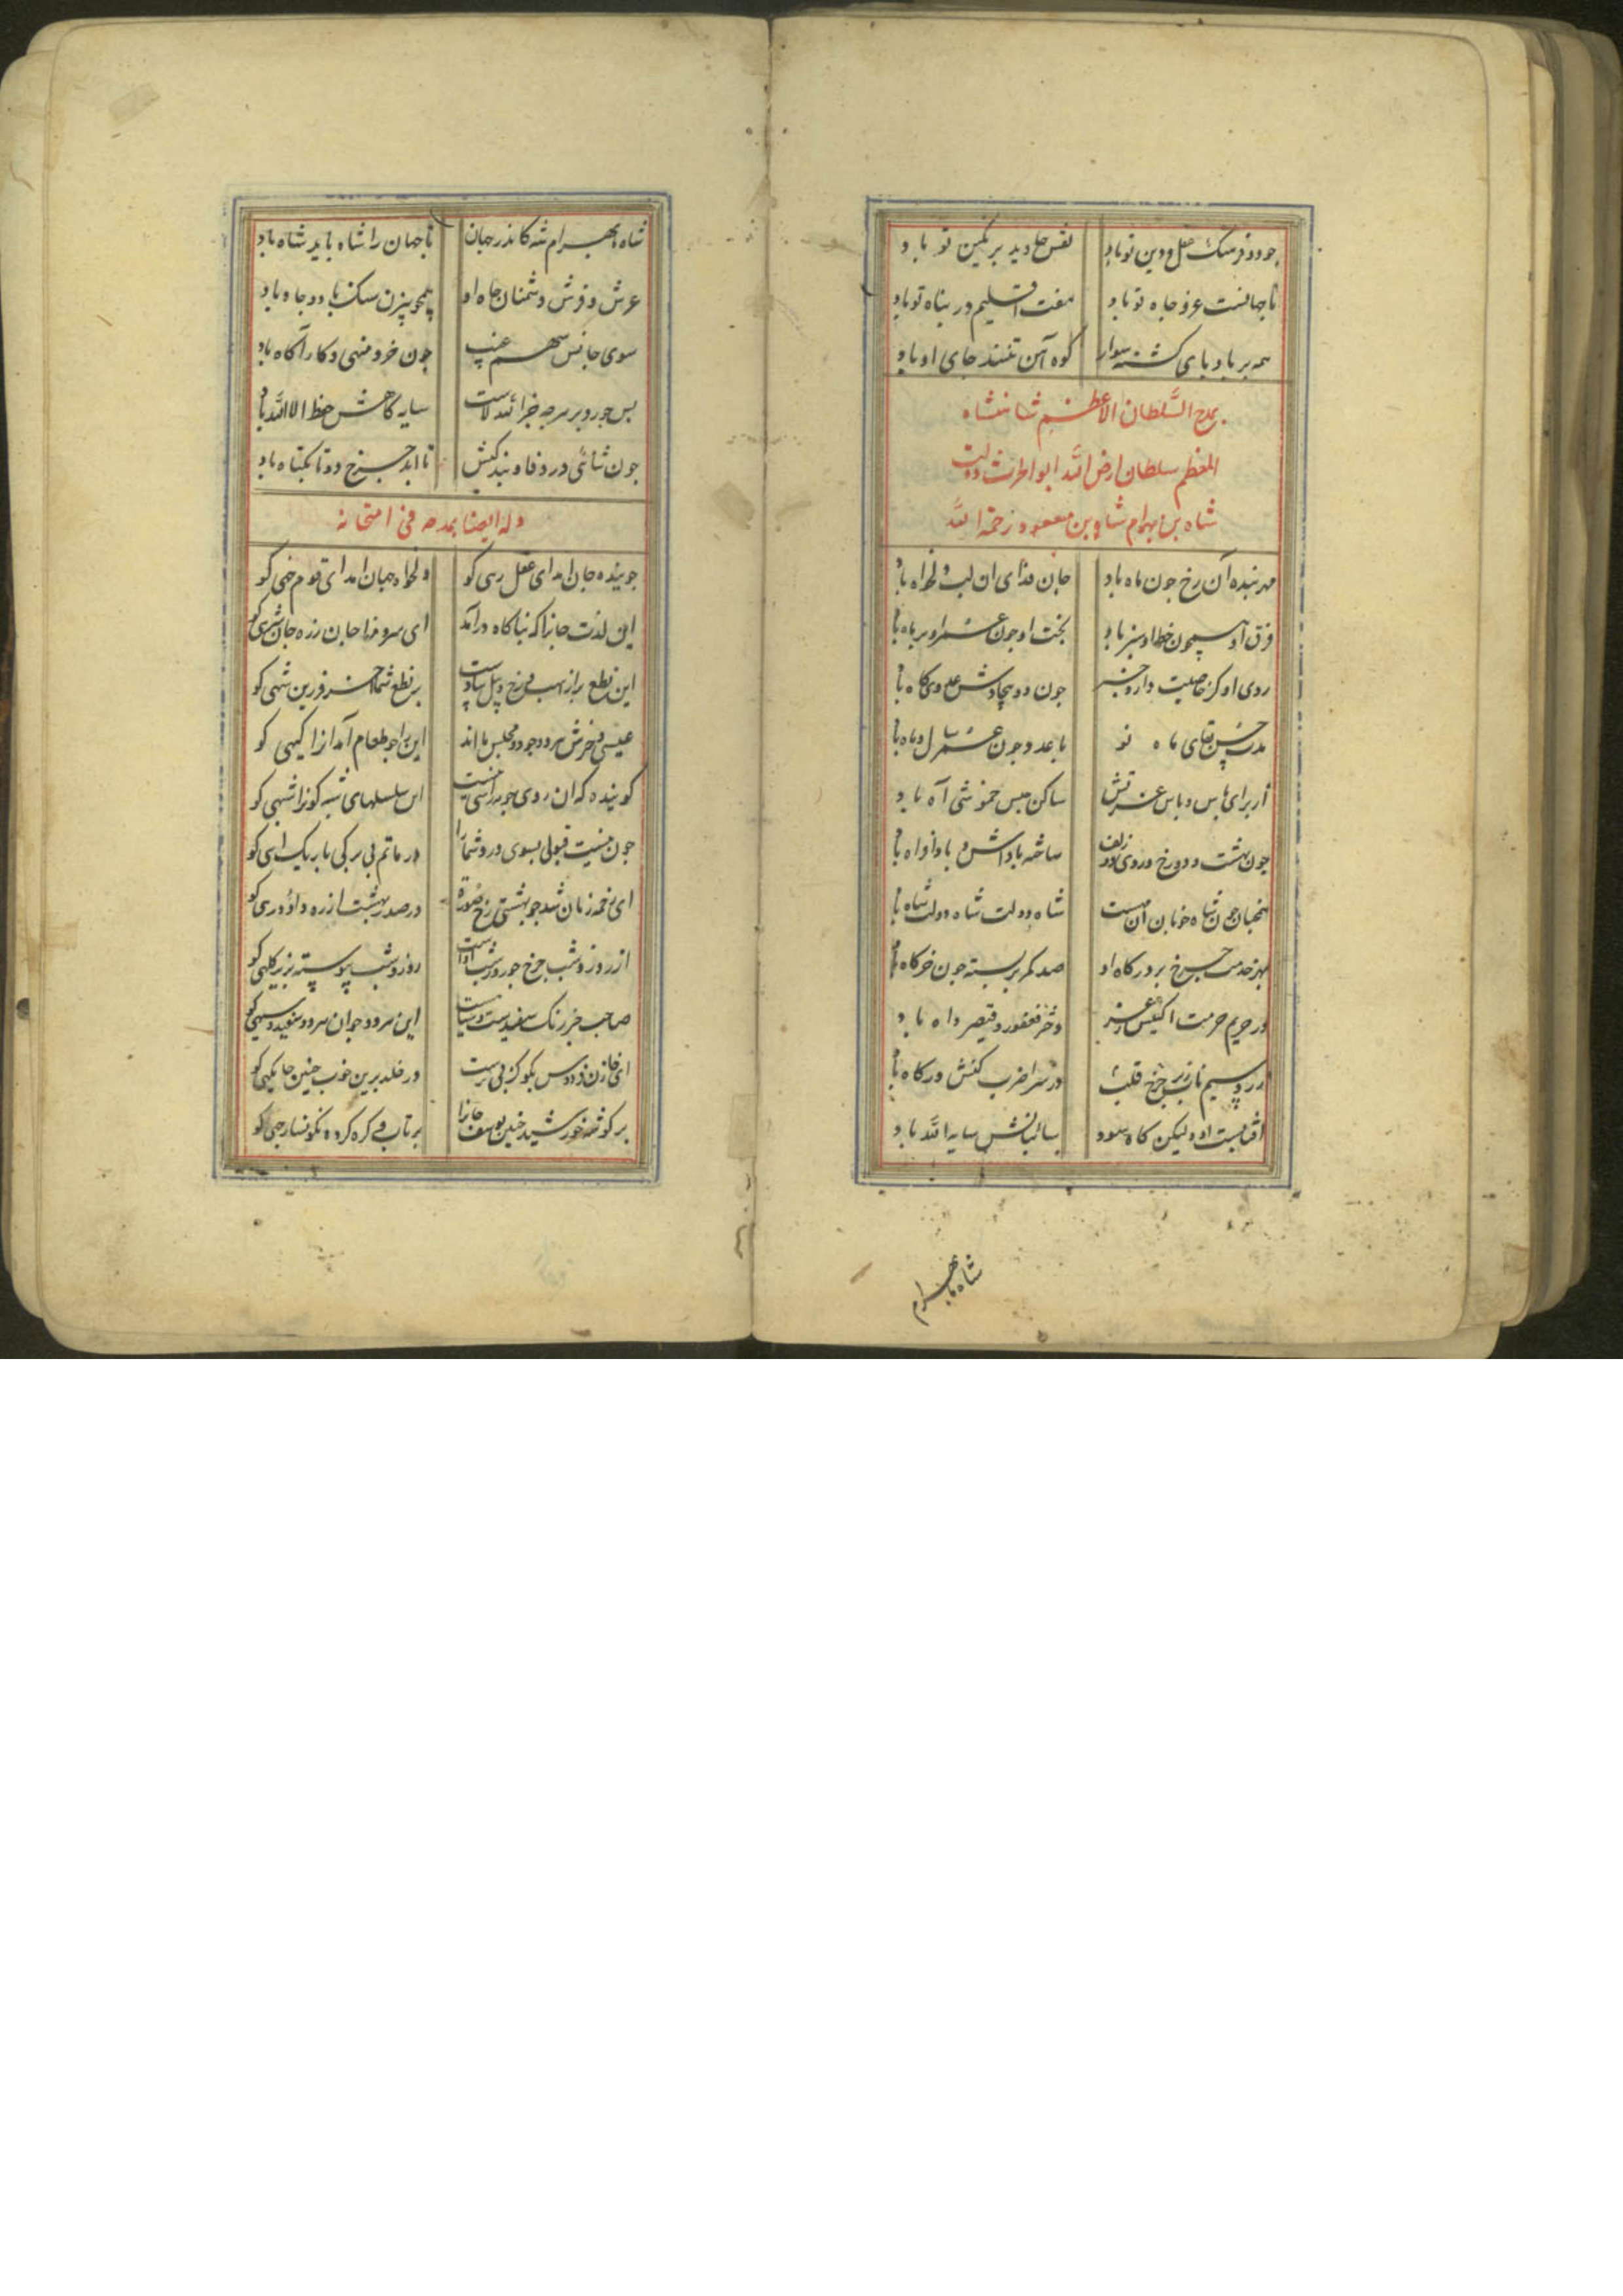 جود و فرسنگ عقل و دین تو باد نقش جاوید بر نگین تو باد
تا جهانست عز و جاه تو باد هفت اقلیم در پناه تو باد
همه بر باد پای کشته سوار کوه آهن جای او باد
بمدح السلطان الاعظم شاهنشاه
المعظم سلطان ارض الله ابو الحرث دولت
شاه بن بهرام شاه بن مسعود رحمة الله
مهر بنده آن رخ چون ماه باد جان فدای ان لب دلخواه باد
فرق او همچون خط او سبز باد بخت او چون
روی او کز خاصیت دارد چون دو بیجادش عدوی کاه باد
مدت حسن بقای ماه نو با عدد چون عشر سال و ماه باد
از برای پاس ساکن حبس خموشی آه باد
چون بهشت و دوزخ در وی زلف ساخته باداش و باد افراه باد
همچنان چون شاه خوبان آن بت است شاه دولت شاه دولت شاه باد
بهر خدمت چرخ بر درگاه او صد کمر بر بسته چون خرگاه باد
در حریم حرمت دختر فغفور و قیصر داه باد
زر و سیم ناب زیر چرخ قلب در سرا ضرب کنش درگاه باد
آفتابست او ولیکن گاه سود سائبانش سایه الله باد
شاه بهرام
شاه بهرام شه کاندر جهان تا جهان را شاه باید شاه باد
عرش و فرش دشمنان جاه او همچو بیژن سنگ با دو جاه باد
سوی جانش سهم غیب چون خرد منهی و کار آگاه باد
بس چو رو بر هرچه جز الله لاست سایه کاهش حفظ الا الله باد
چون ثنائی در وفا و بندگیش تا ابد چرخ دوتا یکتاه باد
وله ایضا بمدحه فی امتحانه
جوینده جان امد ای عقل رهی کو دلخواه جهان امد ای قوم خهی کو
این لذت جانرا که بناگاه درآمد ای سرو جانان زره جان شری کو
این نطع پر از اسب و رخ و پیل پیادست بر نطع شما جز فرزین شهی کو
عیسی و خرش هر دو چو در مجلس ما اند این را چو طعام آمد آنرا گیهی کو
گوینده که ان روی چو مه را این سلسلهای شبه گونرا شبهی کو
چون نیست قبولی بسوی در و شما را در ماتم بی برگی باریک اهی کو
ای زمره زمان شد چو بهشتی رخ در صدر بهشت از ره داود رهی کو
از روز و شب چرخ چو روز و شب روز و شب پیوسته بزیر کلهی کو
صاحب خبر رنگ سفیدست و سیاست این هر دو چو آن هر دو سفید و سیهی کو
ای خازن فردوس بگو کز پی در خلد برین خوب چنین جایگهی کو
بر گوشه خورشید چنین یوسف جانرا پر تاب و گره کرده نگونسار چهی کو